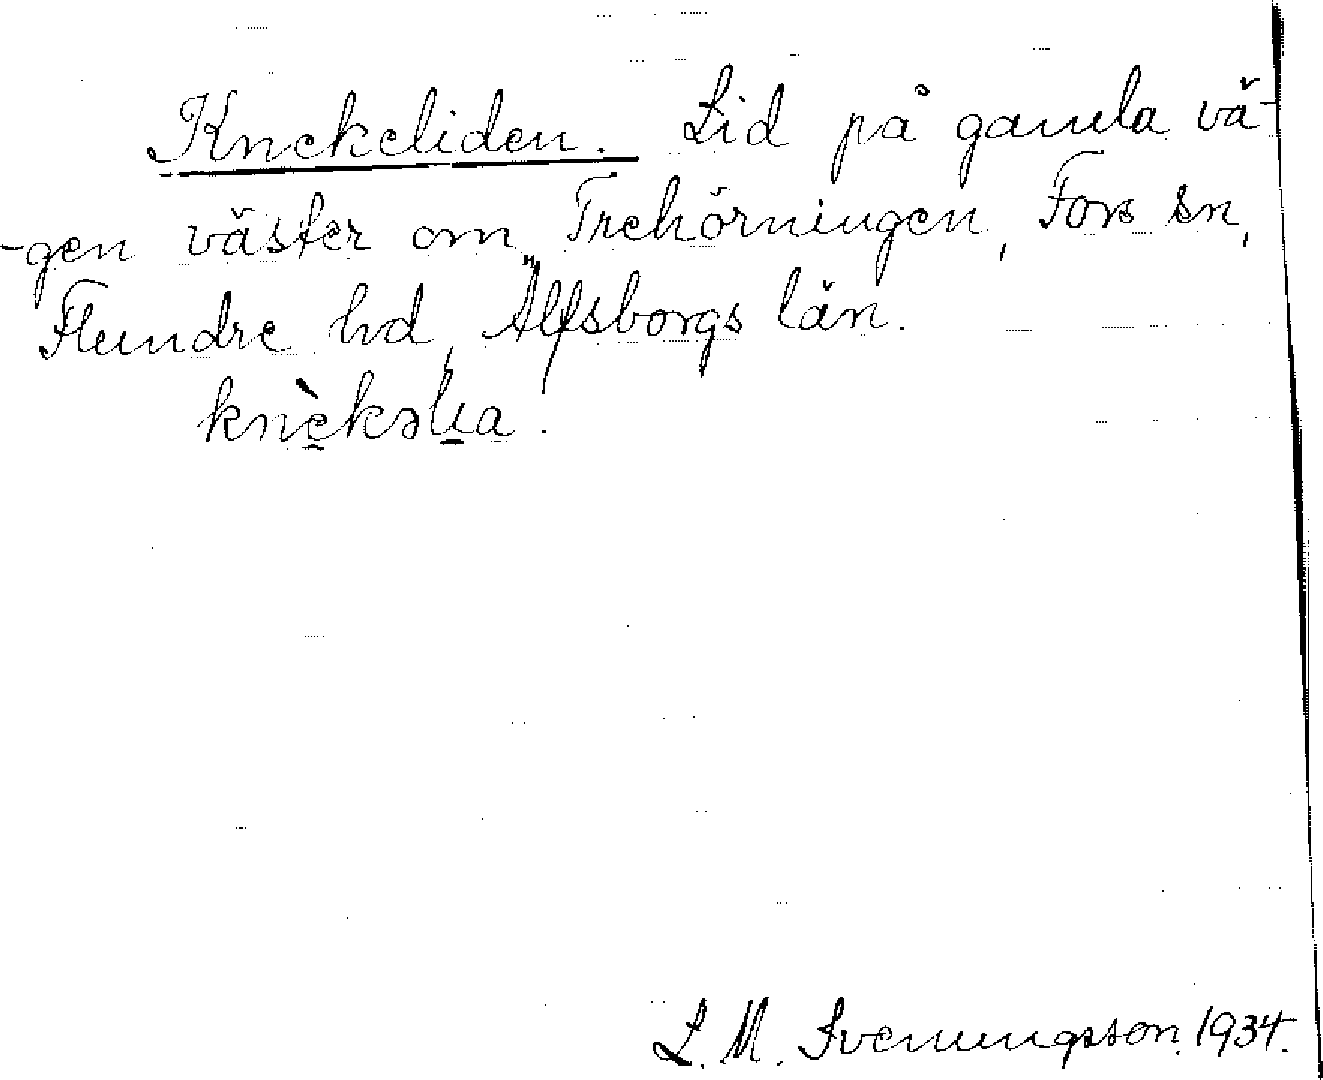 Knekeliden. Lid på gamla vä-
-gen väster om Trehörningen, Fors sn,
Flundre hd, Älfsborgs län.
knèkəlia.
L. M. Svenungsson. 1934.